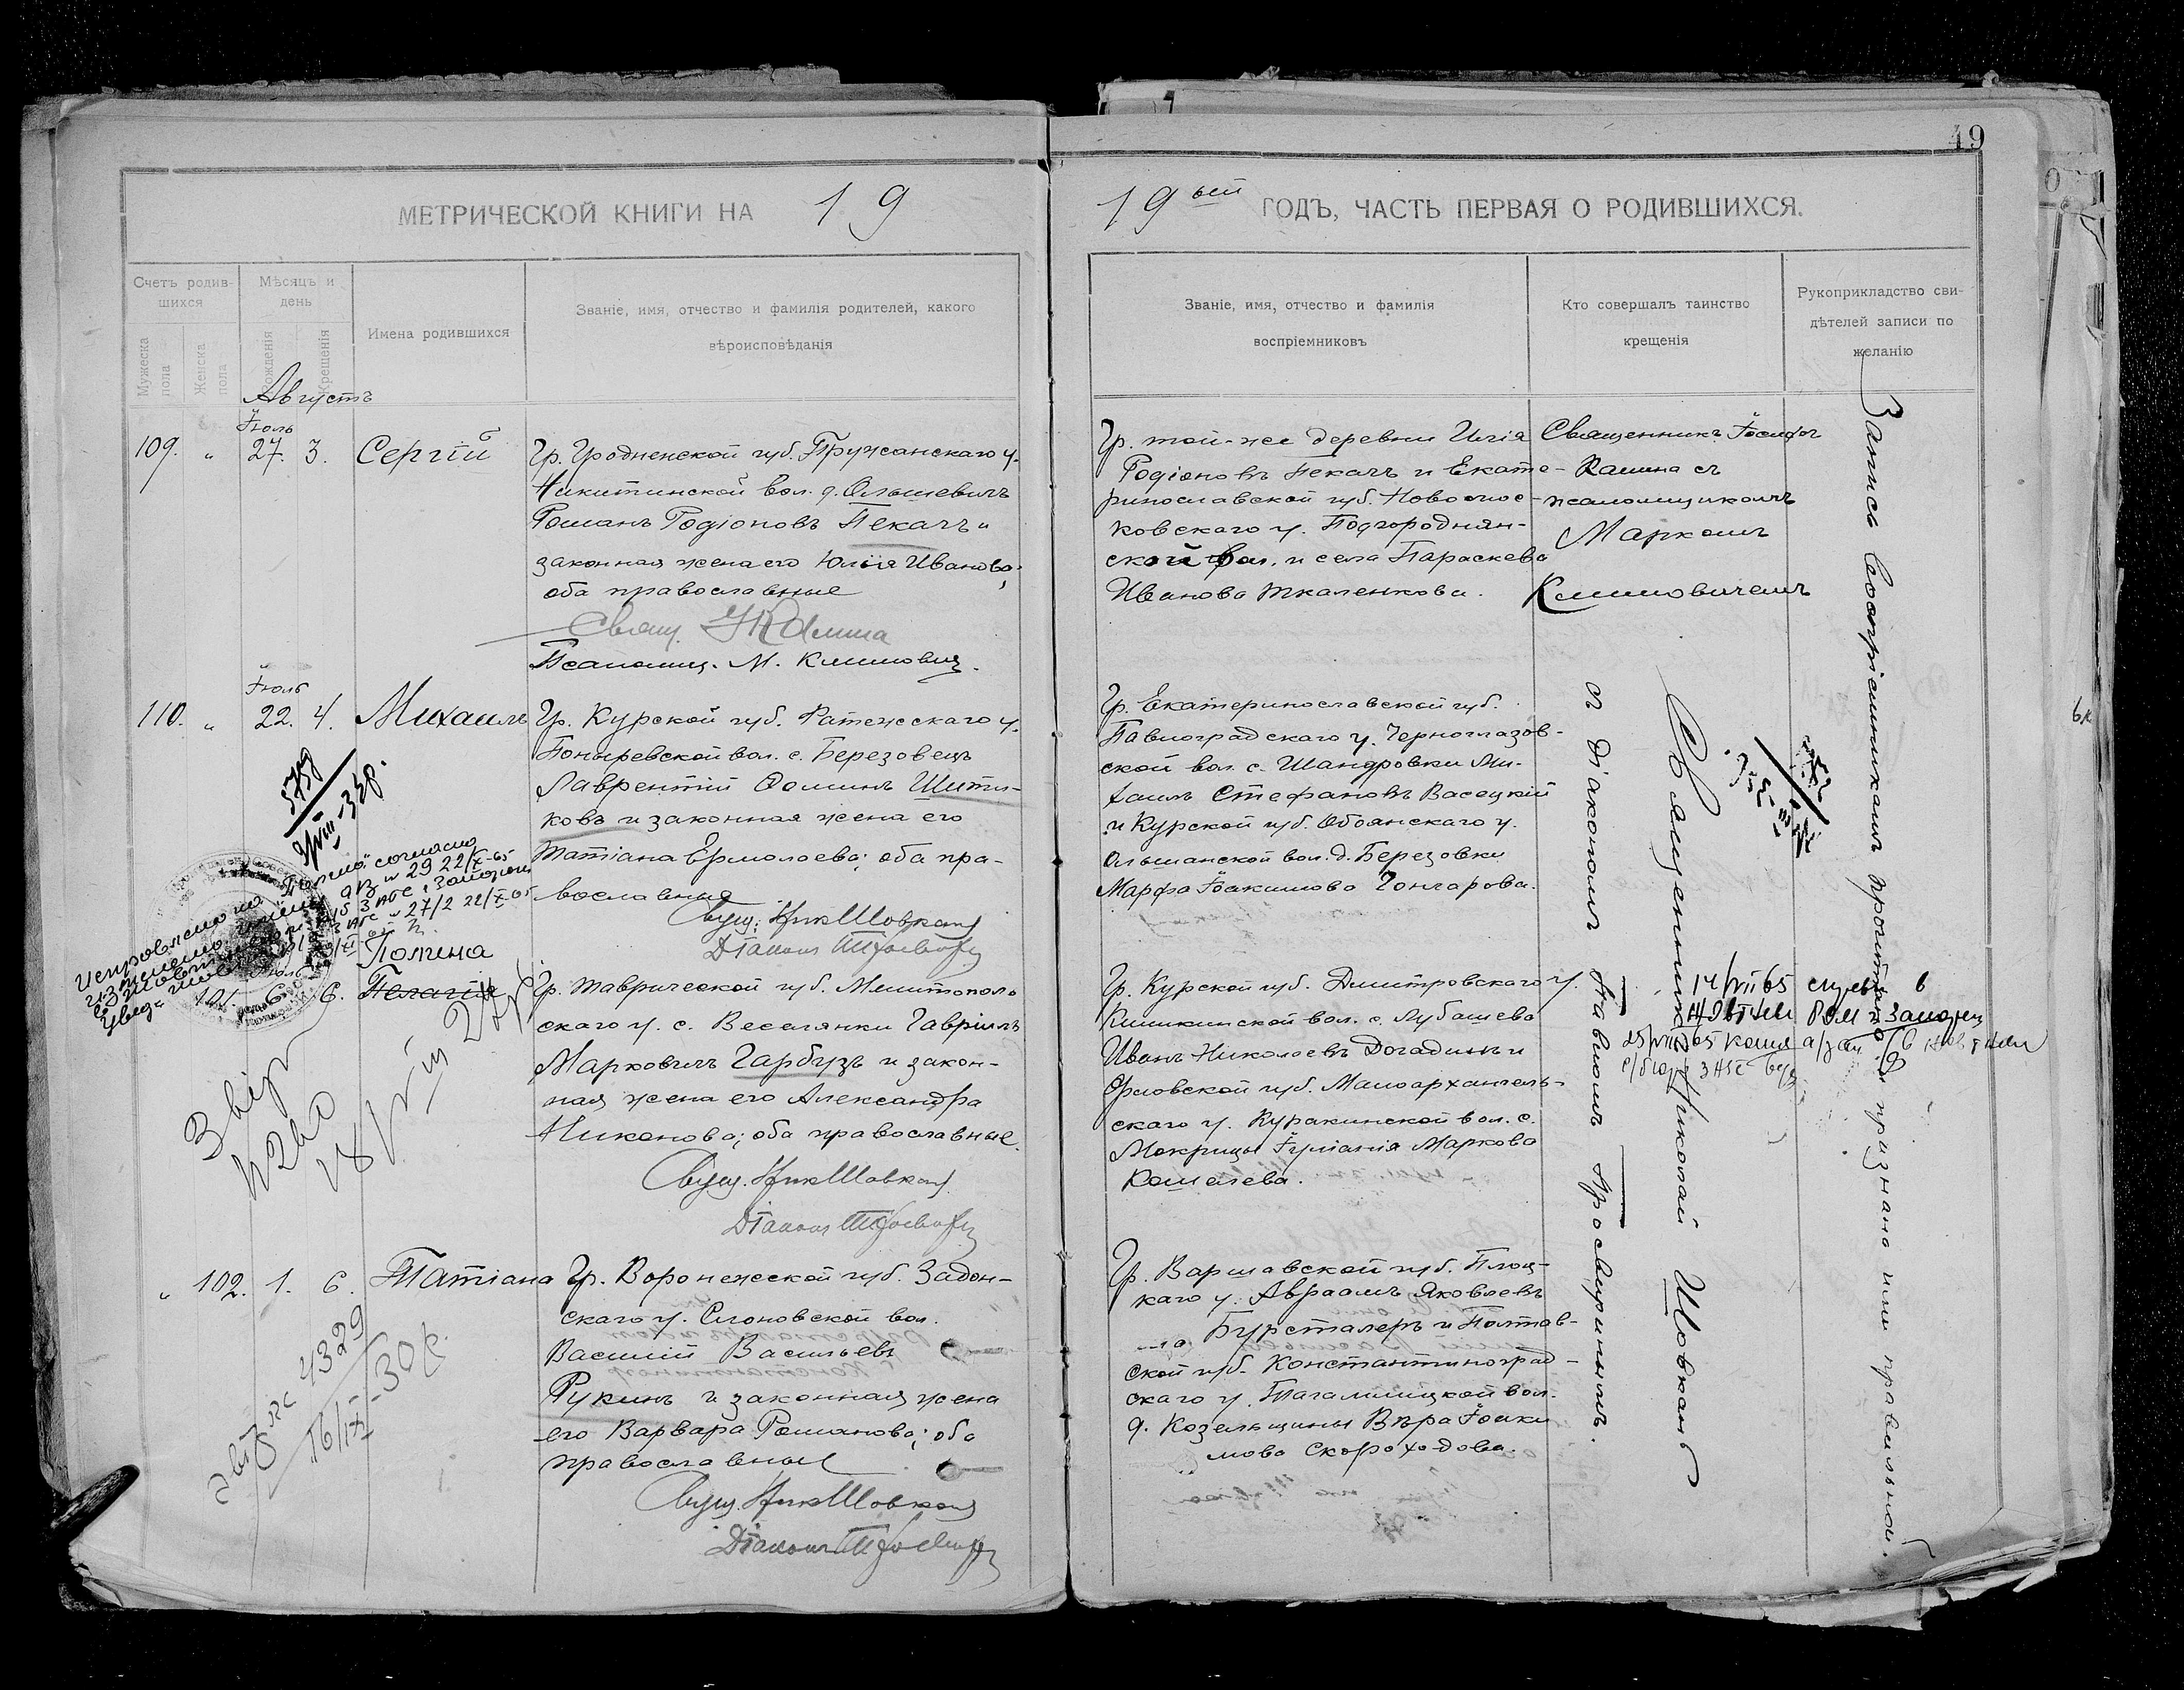 49
МЕТРИЧЕСКОЙ КНИГИ НА 19
19ый ГОДЪ, ЧАСТЬ ПЕРВАЯ О РОДИВШИХСЯ.
Счетъ родив-
шихся
Мужеска пола
Женска пола
Мѣсяцъ и
день
Рожденія
Крещенія
Имена родившихся
Званіе, имя, отчество и фамилія родителей, какого
вѣроисповѣданія
Званіе, имя, отчество и фамилія
воспріемниковъ
Кто совершалъ таинство
крещенія
Рукоприкладство сви-
дѣтелей записи по
желанію
Августъ
Іюль
109. " 27. 3. Сергій
Гр. Гродненской губ. Пружанскаго у.
Никитинской вол. д. Ольшевичъ
Романъ Родіоновъ Пекачъ и
законная жена его Юлія Иванова;
оба православные
Свящ. І Камина
Псаломщ. М. Климович.
Гр. той-же деревни Илія
Родіоновъ Пекачъ и Екате-
ринославской губ. Новомос-
ковскаго у. Подгороднян-
ской вол. и села Параскева
Иванова Ткаленкова.
Священникъ Іосифъ
Камина съ
псаломщикомъ
Маркомъ
Климовичемъ
Іюль
110. " 22. 4. Михаилъ
Гр. Курской губ.
Поныревской вол. с. Березовецъ
Лаврентій Фоминъ Шити-
ковъ и законная жена его
Татіана Ермолаева; оба пра-
вославные
Свящ. Ник Шовкань
Діаконъ
Гр. Екатеринославской губ.
Павлоградскаго у. Черноглазов-
ской вол. с. Шандровки Ми-
хаилъ Стефановъ Васецкій
и Курской губ. Обоянскаго у.
Ольшанской вол. д. Березовки
Марфа Іоакимова Гончарова.
Исправлено на
согласно
22/X-65
Полина
101. 6. 6. Пелагія
Гр. Таврической губ. Мелитополь
скаго у. с. Веселянки Гавріилъ
Марковичъ Гарбузъ и закон-
ная жена его Александра
Никонова; оба православные.
Свящ. Ник Шовкань
Діаконъ
Гр. Курской губ. Дмитровскаго у.
Кишкинской вол. с. Лубашево
Иванъ Николаевъ Догадинъ и
Орловской губ. Малоархангель-
скаго у. Куракинской вол. с.
Мокрицы Іуліанія Маркова
Кошелева.
14/VII 65
" 102. 1. 6. Татіана
Гр. Воронежской губ. Задон-
скаго у. вол.
Василій Васильевъ
Рукинъ и законная жена
его Варвара Романова; оба
православные
Свящ. Ник Шовкань
Діаконъ
4329
16/IX-30р.
Гр. Варшавской губ. Плоц-
каго у. Авраамъ Яковлевъ
Бурсталеръ и Полтав-
ской губ. Константиноград-
скаго у. вол.
д. Козельщины Вѣра Іоаки
мова Скороходова.
Священникъ Николай Шовкань
съ діакономъ Павломъ Просвиринымъ.
Запись воспріемникамъ прочитана и признана ими правильной.